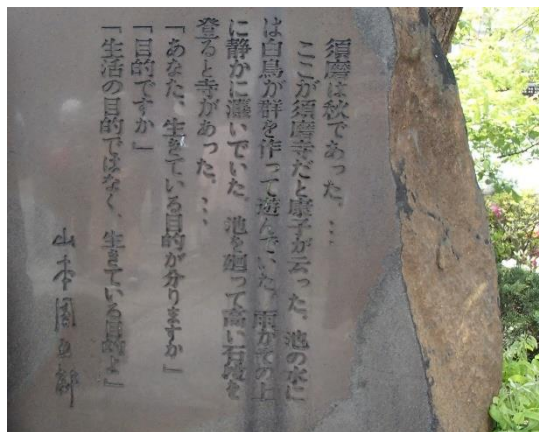 須磨は秋であった、…
ここが須磨寺だと康子が云った、池の水に
は白鳥が群を作って遊んでいた、雨がその上
に静かに灑いでいた、池を廻って高い石段を
登ると寺があった、…
「あなた、生きている目的が分りますか」
「目的ですか」
「生活の目的ではなく、生きている目的よ」
山本周五郎